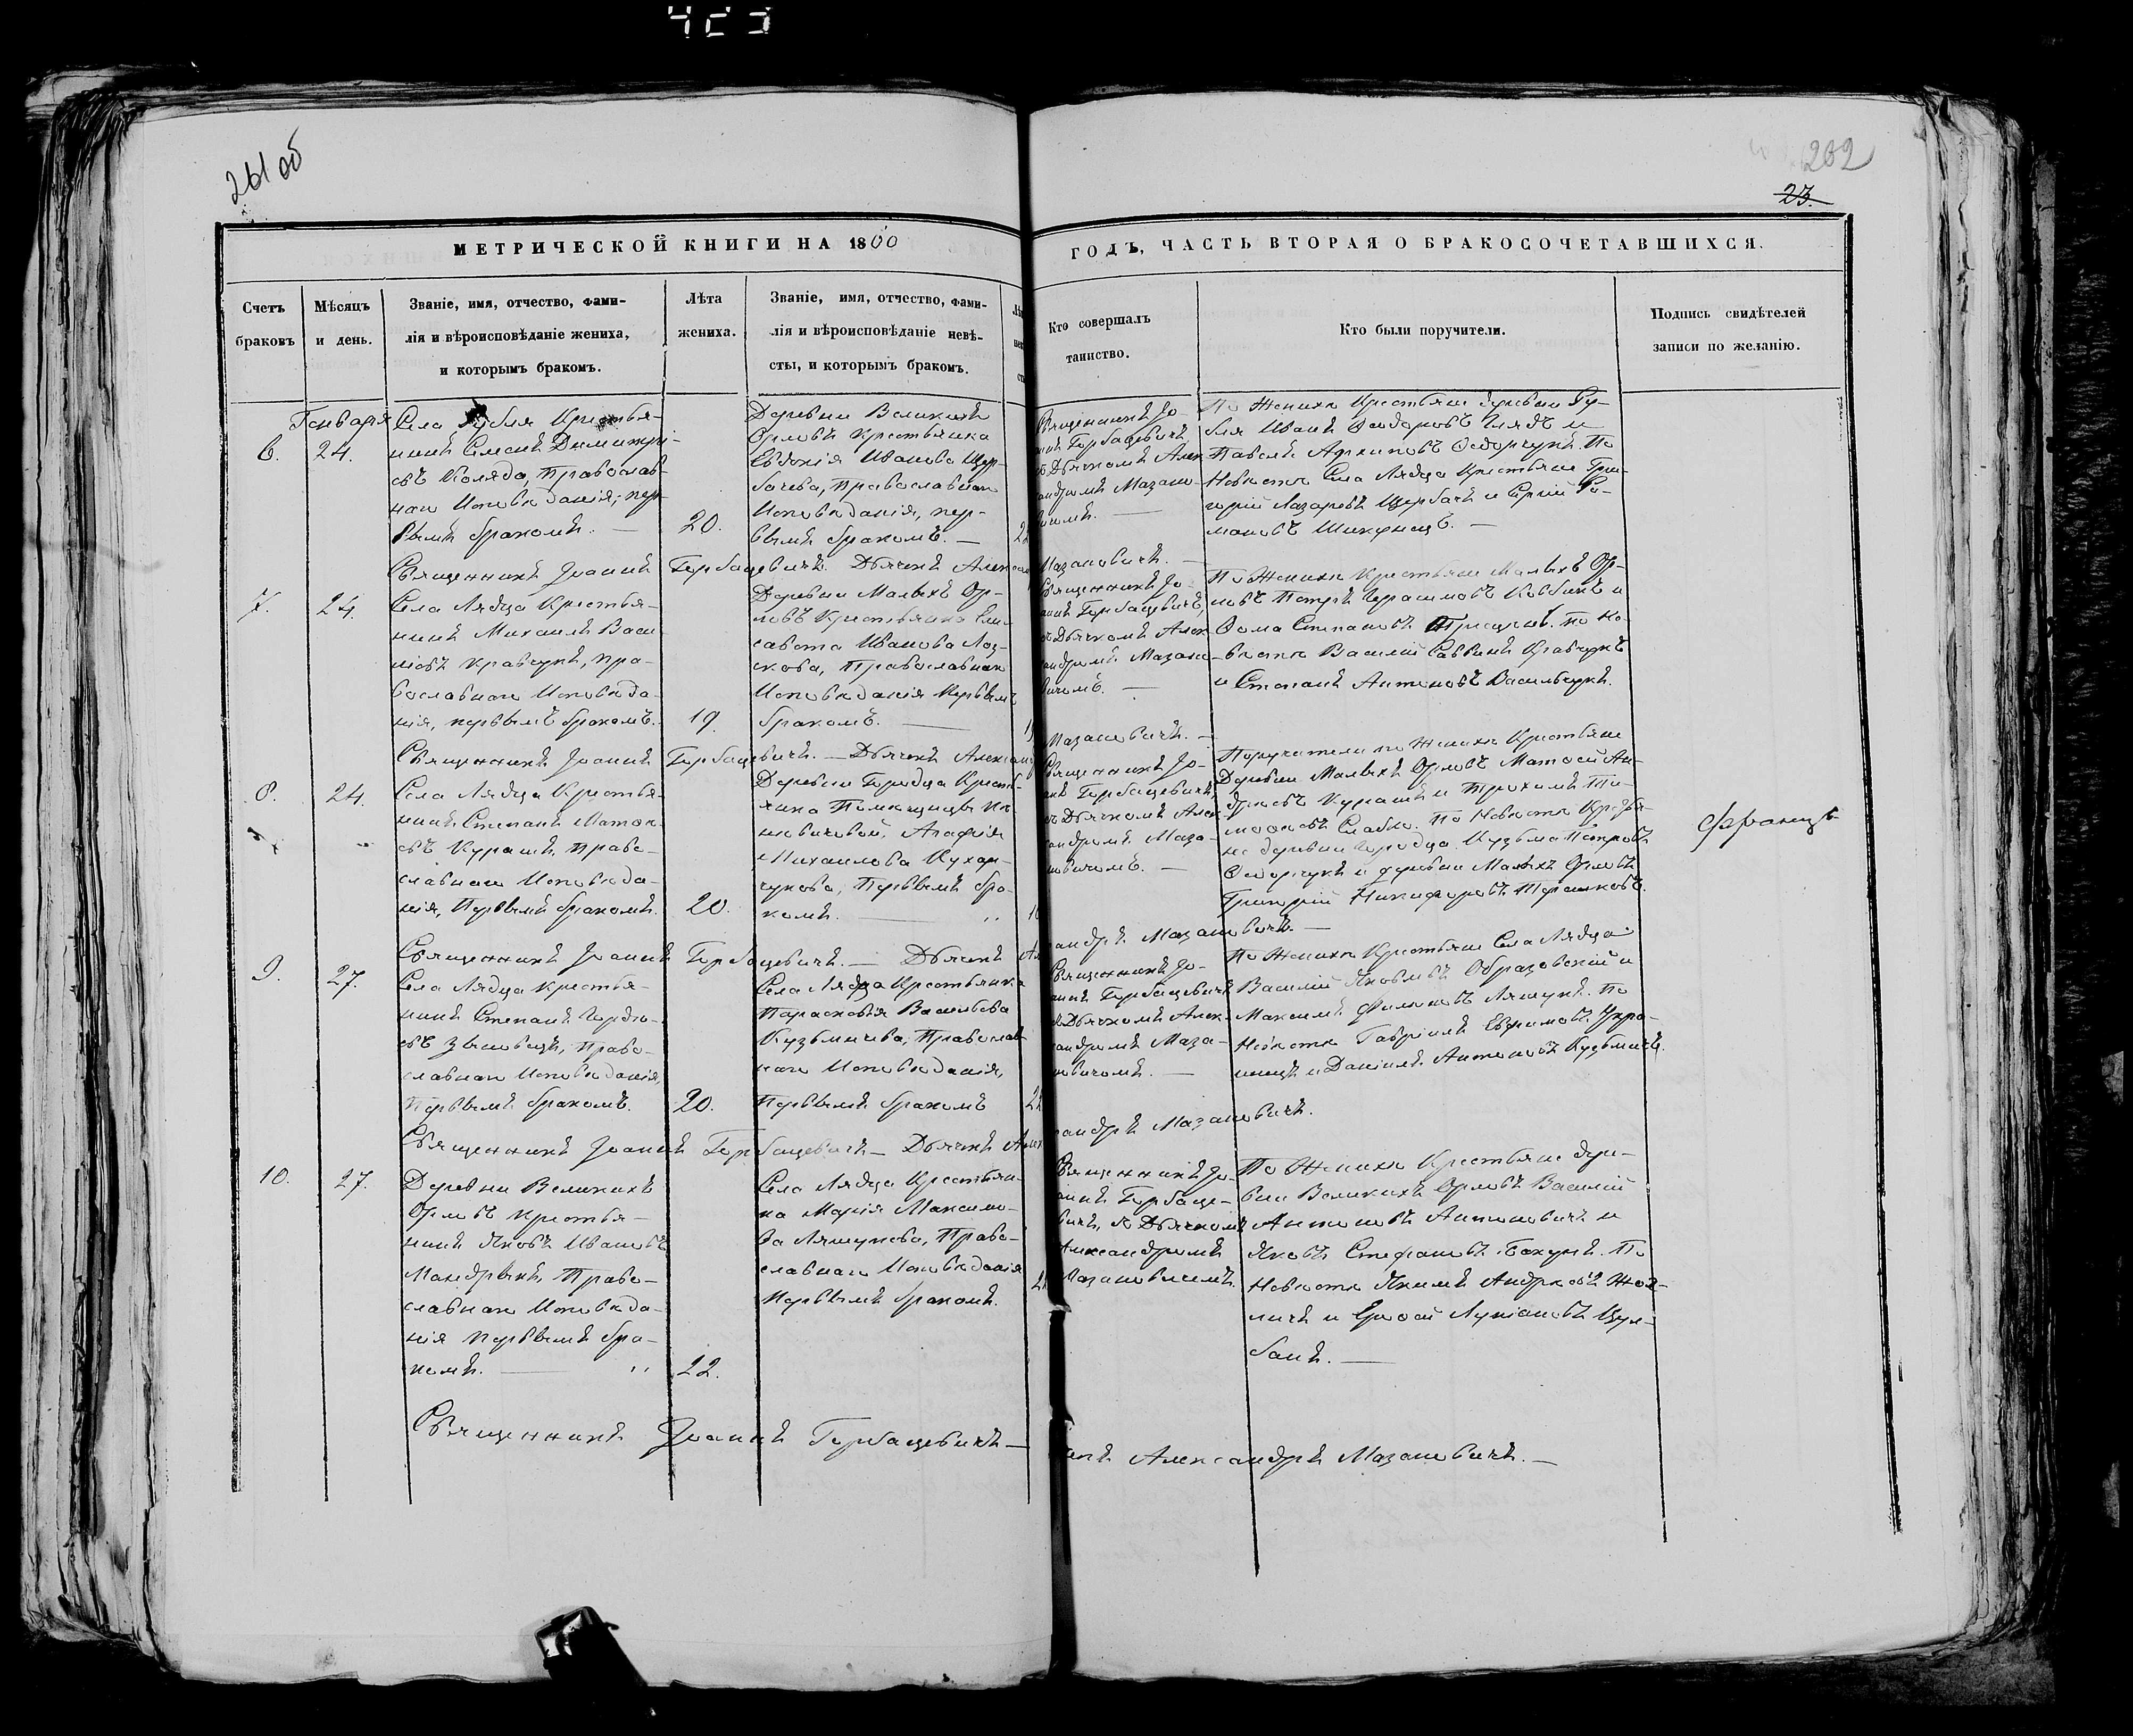 261 об
202
23.
МЕТРИЧЕСКОЙ КНИГИ НА 1860
ГОДЪ, ЧАСТЬ ВТОРАЯ О БРАКОСОЧЕТАВШИХСЯ.
Счетъ
браковъ
Мѣсяцъ
и день.
Званіе, имя, отчество, фами-
лія и вѣроисповѣданіе жениха,
и которымъ бракомъ.
Лѣта
жениха.
Званіе, имя, отчество, фами-
лія и вѣроисповѣданіе невѣ-
сты, и которымъ бракомъ.
Кто совершалъ
таинство.
Кто были поручители.
Подпись свидѣтелей
записи по желанію.
6.
Января
24.
Села Рубля Крестья-
нинъ Симеонъ Димитрі-
евъ Коляда, Православ-
наго Исповѣданія, пер-
вымъ бракомъ. —
20.
Деревни Великихъ
Орловъ Крестьянка
Евдокія Иванова Щер-
бачева, Православнаго
Исповѣданія, пер-
вымъ бракомъ. —
Священникъ Іо-
аннъ Горбацевичъ
съ Дьячкомъ Алек-
сандромъ Мазано-
вичемъ. —
По Женихѣ Крестьяне деревни Ру-
бля Иванъ Ѳеодоровъ и
Павелъ Архиповъ Ѳедорчукъ. По
Невѣстѣ Села Лядца Крестьяне Гри-
горій Лазаревъ Щербачъ и Сергій Ро-
мановъ —
Священникъ Іоаннъ Горбацевичъ. Дьячекъ Александръ Мазановичъ. —
7.
24.
Села Лядца Крестья-
нинъ Михаилъ Васи-
ліевъ Кравчукъ, пра-
вославнаго Исповѣда-
нія, первымъ бракомъ.
19.
Деревни Малыхъ Ор-
ловъ Крестьянка Ели-
савета Иванова Лоз-
кова, Православнаго
Исповѣданія первымъ
бракомъ. —
Священникъ Іо-
аннъ Горбацевичъ,
съ Дьячкомъ Алек-
сандромъ Мазано-
вичемъ. —
По Женихѣ Крестьяне Малыхъ Ор-
ловъ Петръ Герасимовъ Ковбикъ и
Ѳома Степановъ По Не-
вѣстѣ Василій Саввинъ Кравчукъ
и Степанъ Антоновъ Васильчукъ.
Священникъ Іоаннъ Горбацевичъ. — Дьячекъ Александръ Мазановичъ. —
8.
24.
Села Лядца Крестья-
нинъ Степанъ Матѳе-
евъ Курашъ, право-
славнаго Исповѣда-
нія, Первымъ бракомъ.
20.
Деревни Городца Кресть-
янка Помѣщицы
Агафія
Михаилова Кухар-
чукова, Первымъ бра-
комъ. —
Священникъ Іо-
аннъ Горбацевичъ
съ Дьячкомъ Алек-
сандромъ Маза-
новичемъ. —
Поручители по Женихѣ Крестьяне
Деревни Малыхъ Орловъ Матѳей Ан-
дреевъ Курашъ и Трохимъ Ти-
моѳеевъ По Невѣстѣ Крестья-
не деревни Городца Кузьма Петровъ
Ѳедорчукъ и деревни Малыхъ Орловъ
Григорій Никифоровъ
францъ
Священникъ Іоаннъ Горбацевичъ. — Дьячекъ Александръ Мазановичъ. —
9.
27.
Села Лядца Крестья-
нинъ Степанъ Гордѣ-
евъ Православ-
наго Исповѣданія,
Первымъ бракомъ.
20.
Села Лядца Крестьянка
Парасковія Васильева
Кузьмичева, Православ-
наго Исповѣданія,
Первымъ бракомъ
Священникъ Іо-
аннъ Горбацевичъ
съ Дьячкомъ Алек-
сандромъ Маза-
новичемъ. —
По Женихѣ Крестьяне Села Лядца
Василій Яковлевъ Образовскій и
Максимъ Филиповъ Ляшукъ. По
Невѣстѣ Гавріилъ Ефимовъ Укра-
инецъ и Даніилъ Антоновъ Кузьмичъ.
Священникъ Іоаннъ Горбацевичъ — Дьячекъ Александръ Мазановичъ.
10.
27.
Деревни Великихъ
Орловъ Крестья-
нинъ Яковъ Ивановъ
Мандрыкъ, Право-
славнаго Исповѣда-
нія Первымъ бра-
комъ. —
22.
Села Лядца Крестьян-
ка Марія Максимо-
ва Ляшукова, Право-
славнаго Исповѣданія
Первымъ бракомъ.
Священникъ Іо-
аннъ Горбаце-
вичъ, съ Дьячкомъ
Александромъ
Мазановичемъ.
По Женихѣ Крестьяне дере-
вни Великихъ Орловъ Василій
Антоновъ Антоновичъ и
Яковъ Стефановъ Бакунъ. По
Невѣстѣ Якимъ Андреевъ
и Ероѳей Лукіановъ Цум-
банъ. —
Священникъ Іоаннъ Горбацевичъ — Дьячекъ Александръ Мазановичъ. —